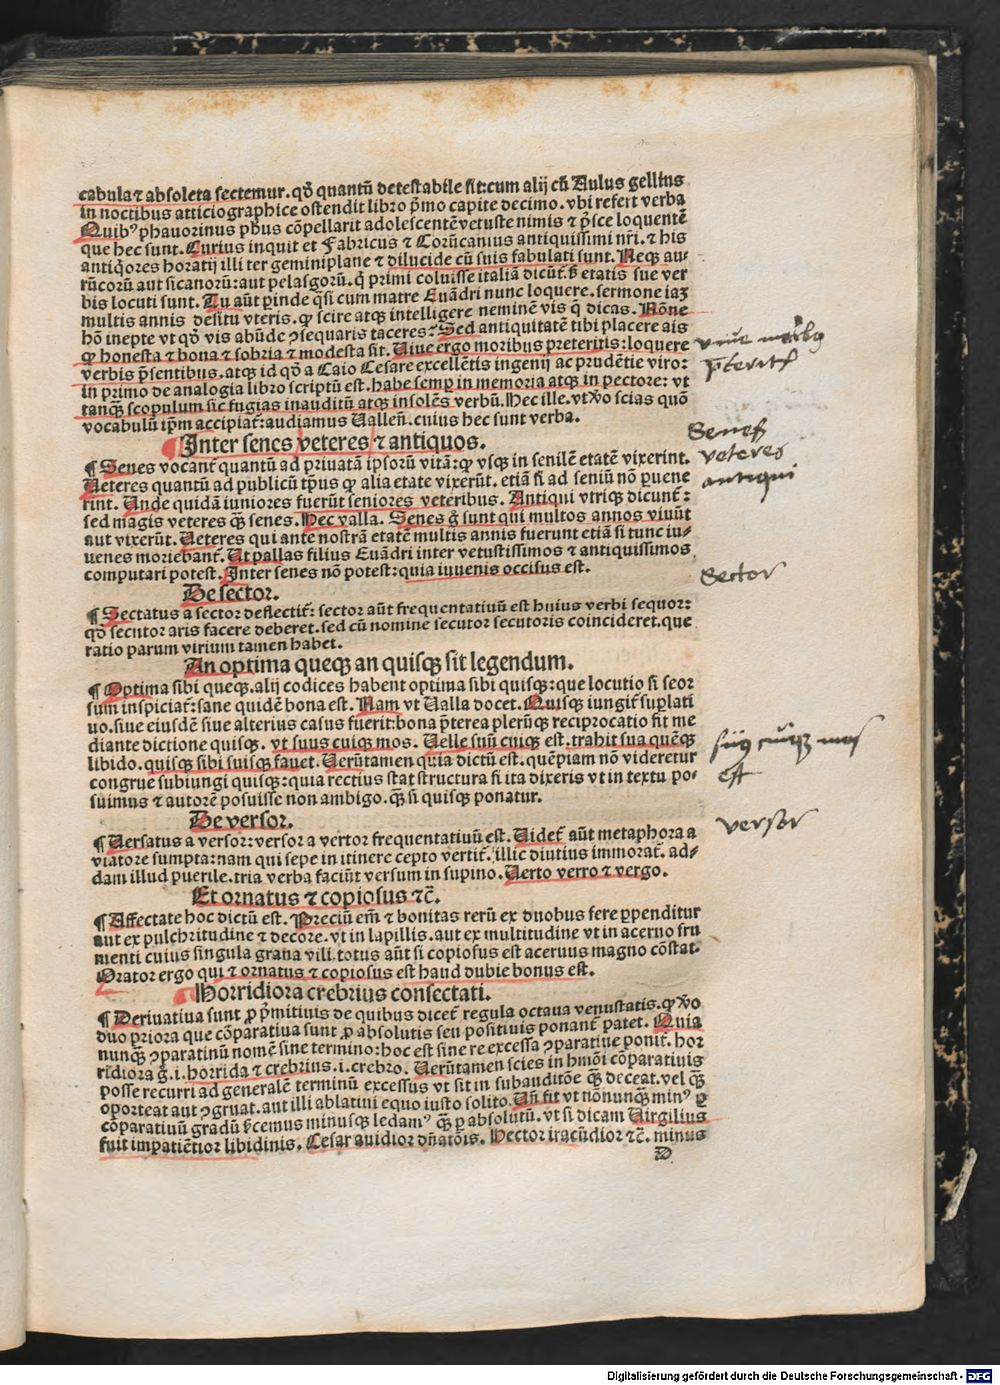 cabula ⁊ absoleta sectemur. qđ quantū detestabile sit: cum alij cū Aulus gellius
in noctibus atticiographice ostendit libro p̄mo capite decimo. vbi refert verba
Quibꝰ phauorinus pb̄us cōpellarit adolescentē vetuste nimis ⁊ p̄sce loquentē
que hec sunt. Curius inquit et Fabricus ⁊ Corūcanius antiquissimi nr̄i. ⁊ his
antiq̄ores horatij illi ter geminiplane ⁊ dilucide cū suis fabulati sunt. Neqꝫ au-
rūcorū aut sicanorū: aut pelasgorū. q̄ primi coluisse italiā dicūt. ß etatis sue ver
bis locuti sunt. Tu aūt ꝑinde q̄si cum matre Euādri nunc loquere. sermone iaꝫ
multis annis desitu vteris. ꝙ scire atqꝫ intelligere neminē vis q̄ dicas. Nōne
hō inepte vt qđ vis abūde ꝯsequaris taceres? Sed antiquitatē tibi placere ais
ꝙ honesta ⁊ bona ⁊ sobria ⁊ modesta sit. Uiue ergo moribus preteritis: loquere
verbis p̄sentibus. atqꝫ id qđ a Caio Cesare excellētis ingenij ac prudētie viro:
in primo de analogia libro scriptū est. habe semꝑ in memoria atqꝫ in pectore: vt
tanqꝫ̄ scopulum sic fugias inauditū atqꝫ insolēs verbū. Hec ille. vt ꝟo scias quō
vocabulū ip̄m accipiat᷑: audiamus Uallen̄. cuius hec sunt verba.
Inter senes veteres ⁊ antiquos.
¶ Senes vocant᷑ quantū ad priuatā ipsorū vitā: ꝙ vsqꝫ in senilē etatē vixerint.
Ueteres quantū ad publicū tp̄us ꝙ alia etate vixerūt. etiā si ad seniū nō ꝑuene
rint. Unde quidā iuniores fuerūt seniores veteribus. Antiqui vtriqꝫ dicunt᷑:
sed magis veteres qꝫ̄ senes. Hec valla. Senes g̊ sunt qui multos annos viuūt
aut vixerūt. Ueteres qui ante nostrā etatē multis annis fuerunt etiā si tunc iu-
uenes moriebant᷑. Ut pallas filius Euādri inter vetustissimos ⁊ antiquissimos
computari potest. Inter senes nō potest: quia iuuenis occisus est.
De sector.
¶ Sectatus a sector deflectit᷑: sector aūt frequentatiuū est huius verbi sequor:
qđ secutor aris facere deberet. sed cū nomine secutor secutoris coincideret. que
ratio parum virium tamen habet.
An optima queqꝫ an quisqꝫ sit legendum.
¶ Optima sibi queqꝫ. alij codices habent optima sibi quisqꝫ: que locutio si seor
sum inspiciat᷑: sane quidē bona est. Nam vt Ualla docet. Quisqꝫ iungit᷑ suꝑlati
uo. siue eiusdē siue alterius casus fuerit: bona p̄terea plerūqꝫ reciprocatio fit me
diante dictione quisqꝫ. vt suus cuiqꝫ mos. Uelle suū cuiqꝫ est. trahit sua quēqꝫ
libido. quisqꝫ sibi suisqꝫ fauet. Uerūtamen quia dictū est. quēpiam nō videretur
congrue subiungi quisqꝫ: quia rectius stat structura si ita dixeris vt in textu po-
suimus ⁊ autorē posuisse non ambigo. qꝫ̄ si quisqꝫ ponatur.
De versor.
¶ Uersatus a versor: versor a vertor frequentatiuū est. Uidet᷑ aūt metaphora a
viatore sumpta: nam qui sepe in itinere cepto vertit᷑. illic diutius immorat᷑. ad-
dam illud puerile. tria verba faciūt versum in supino. Uerto verro ⁊ vergo.
Et ornatus ⁊ copiosus ⁊c̄.
¶ Affectate hoc dictū est. Preciū em̄ ⁊ bonitas rerū ex duobus fere ꝑpenditur
aut ex pulchritudine ⁊ decore. vt in lapillis. aut ex multitudine vt in aceruo fru
menti cuius singula grana vili. totus aūt si copiosus est aceruus magno cōstat.
Orator ergo qui ⁊ ornatus ⁊ copiosus est haud dubie bonus est.
Horridiora crebrius consectati.
¶ Deriuatiua sunt ꝓ p̄mitiuis de quibus dicet᷑ regula octaua venustatis. ꝙ ꝟo
duo priora que cōparatiua sunt ꝓ absolutis seu positiuis ponant᷑ patet. Quia
nunqꝫ̄ ꝯparatiuū nomē sine termino: hoc est sine re excessa ꝯparatiue ponit᷑. hor
ridiora g̊. i. horrida ⁊ crebrius. i. crebro. Uerūtamen scies in hmōi cōparatiuis
posse recurri ad generalē terminū excessus vt sit in subauditōe qꝫ̄ deceat. vel qꝫ̄
oporteat aut ꝯgruat. aut illi ablatiui equo iusto solito. Un̄ fit vt nōnunqꝫ̄ minꝰ ꝑ
cōparatiuū gradū ß̄cemus minusqꝫ ledamꝰ qꝫ̄ ꝑ absolutū. vt si dicam Uirgilius
fuit impatiētior libidinis. Cesar auidior dn̄atōis. Hector iracūdior ⁊c̄. minus
D
viue moribꝫ
p̄teritis
Senes
veteres
antiqui
Sector
suꝯ cuiqꝫ mos
est
versor
Digitalisierung gefördert durch die Deutsche Forschungsgemeinschaft - DFG